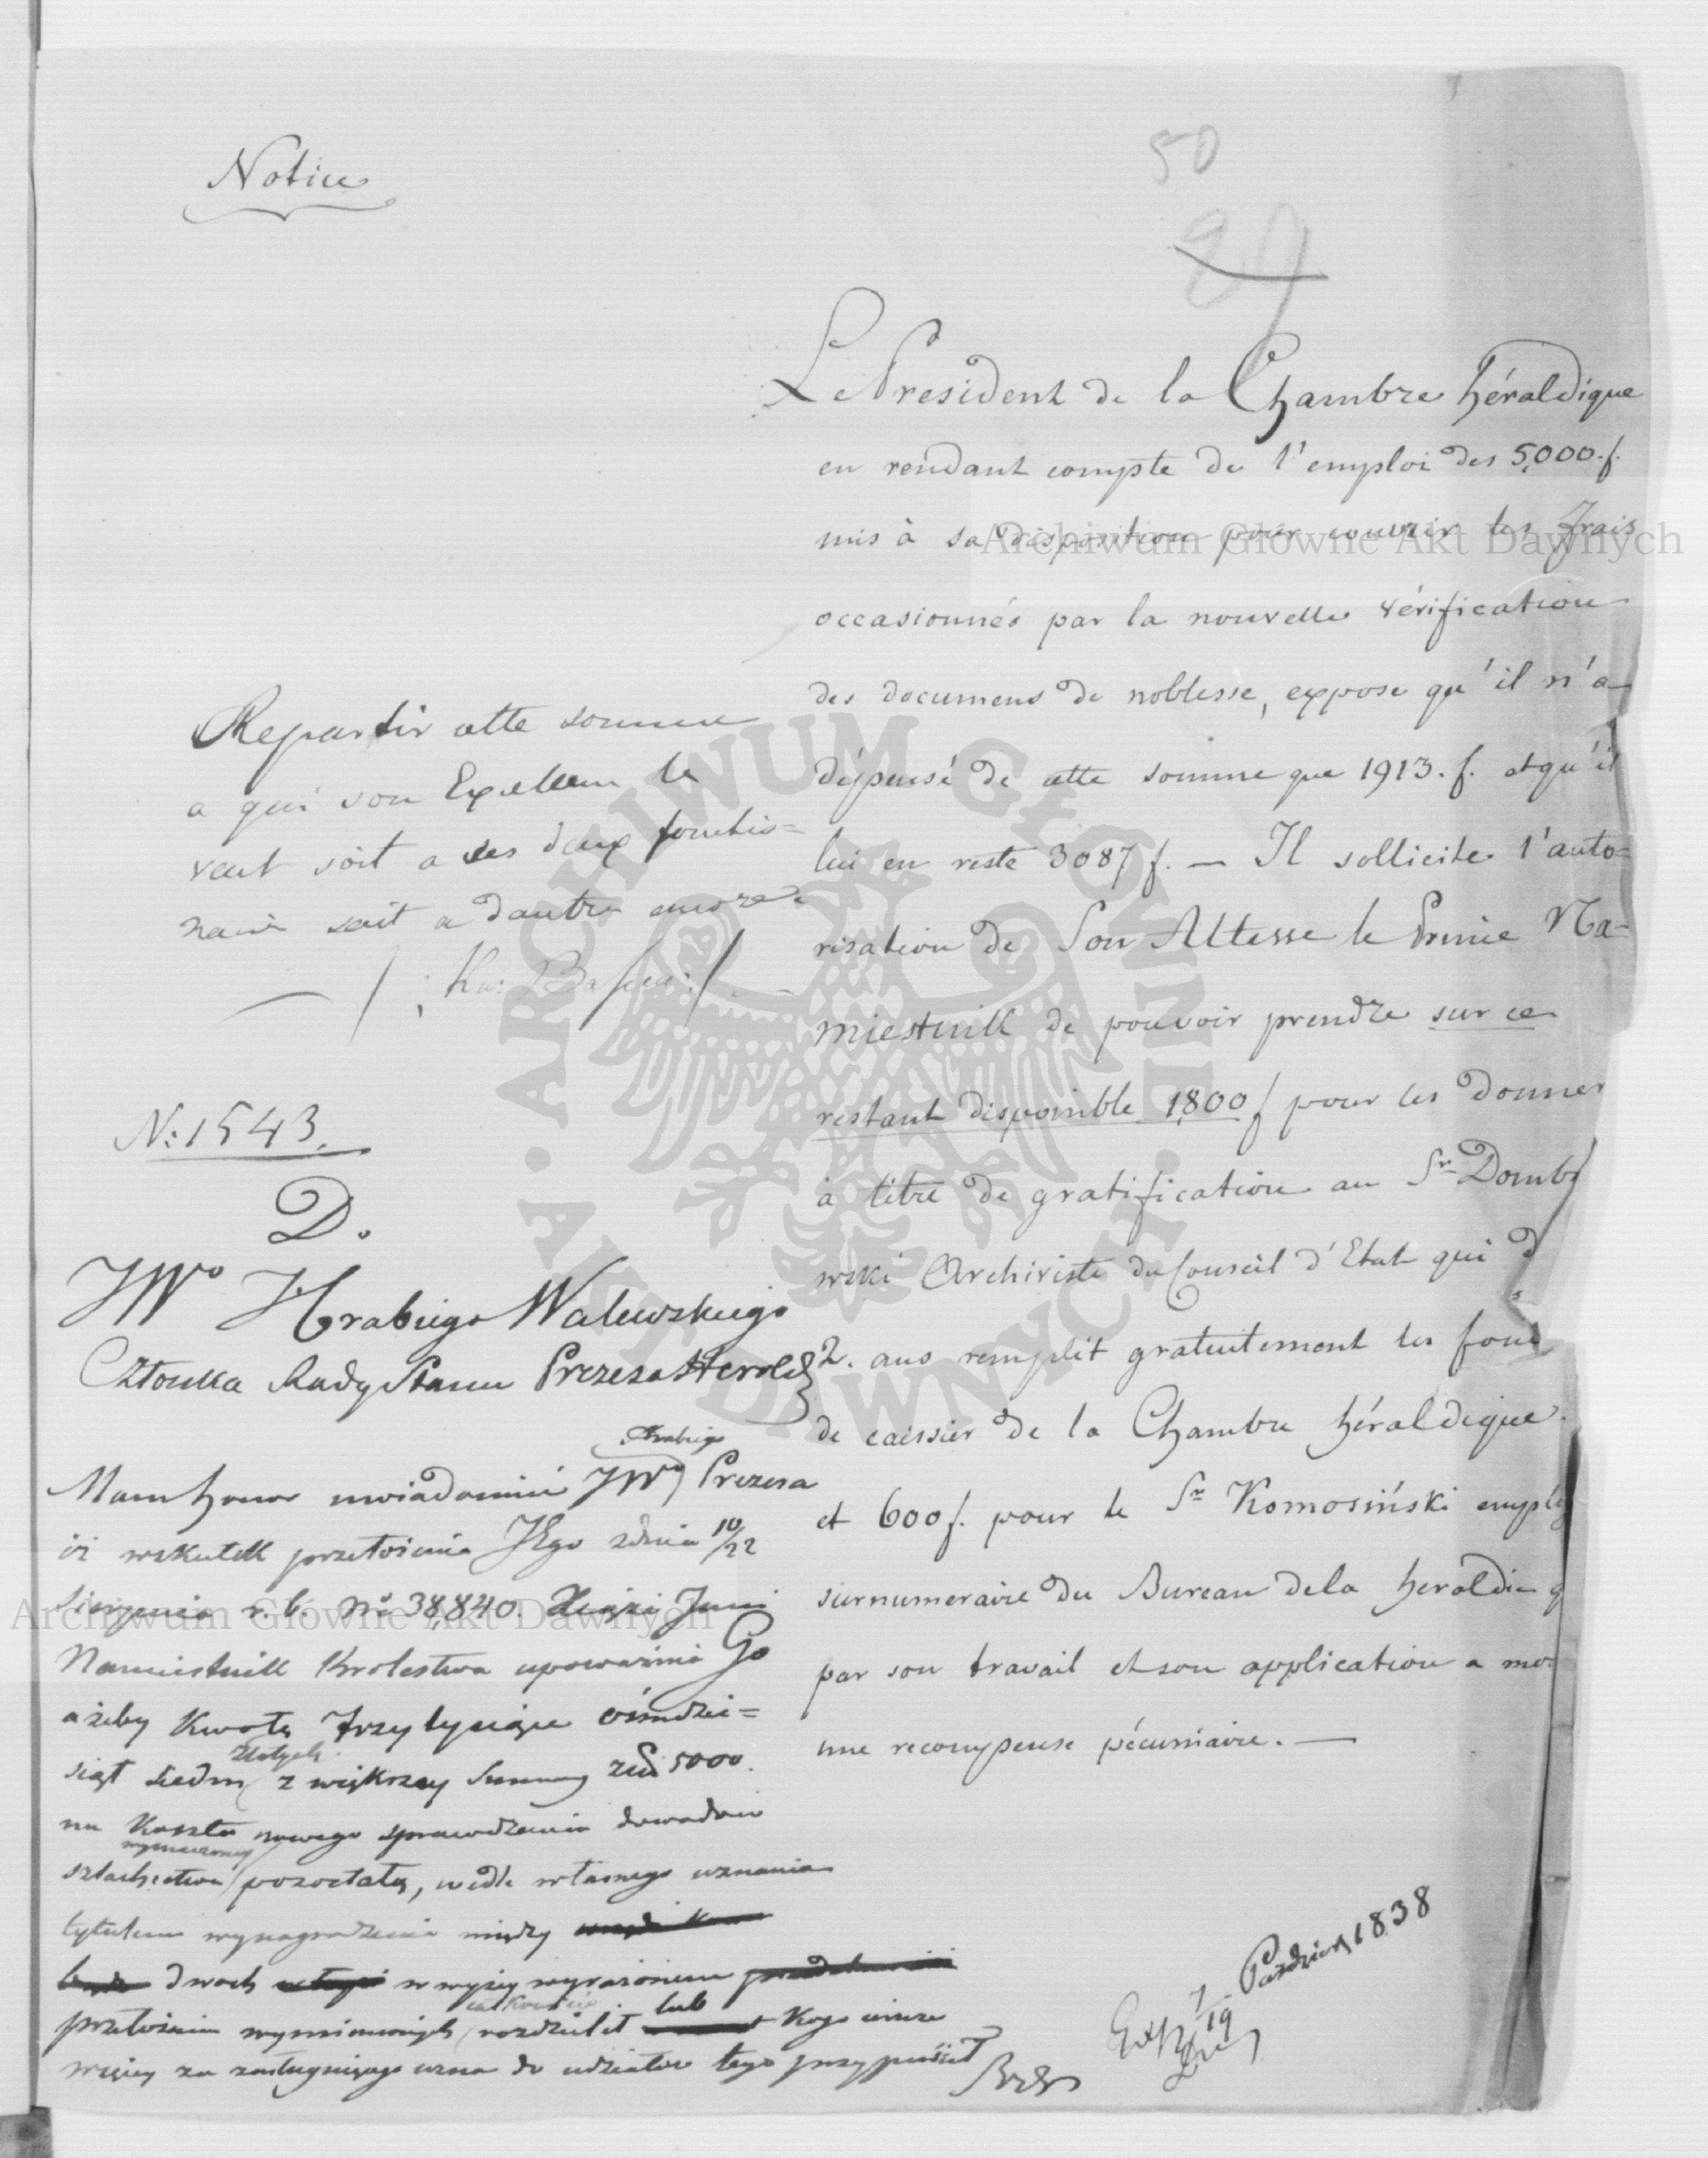 Notice
50
29
Le President de la Chambre héraldique
en rendant compte de l'emploi des 5,000.f.
mis à sa disposition pour couvrir les frais
occasionnés par la nouvelle vérification
des documens de noblesse, expose qu'il n'a
dépensé de cette somme que 1913. f. et qu'il
lui en reste 3087 f. — Il sollicite l'auto=
risation de Son Altesse le Prince Na-
miestnik de pouvoir prendre sur ce
restant disponible 1,800 f pour les donner
à titre de gratification au Sr Dombr
wski Archiviste du Conseil d'Etat qui d
2. ans remplit gratuitement les fonc
de caissier de la Chambre héraldique.
et 600 f. pour le Sr Komosiński emplo
surnumeraire du Bureau de la heraldiq
par son travail et son application a me
une recompense pécuniaire. —
Repartir cette somme
a qui son Excellence le
veut soit a ces deux fonctio=
naire soit a dautre encore
N: 1543.
D.
JWo Hrabiego Walewskiego
Członka Rady Stanu Prezesa Herold
Mam honor uwiadomić JWo Hrabiego Prezesa
iż wskutek przełożenia JEgo zdnia 10/22
Sierpnia r. b. No 38,840. Xiąże Jmci
Namiestnik Krolestwa upoważnia Go
ażeby kwotę trzy tysiące ośmdzie=
siąt siedm złotych z większey Summy złp 5000.
na koszta nowego sprawdzenia dowodów
szlachectwa wyznaczoney pozostałą, wedle własnego uznania
tytułem wynagrodzenia między
dwoch w wyżey wyrażonem
przełożeniu wymienionych całkowicie rozdzielił lub kogo ieszcze
więcey za zasługuiącego uzna do udziału tego przypuścił
7/19 Paździer. 1838
Archiwum Główne Akt Dawnych
Archiwum Główne Akt Dawnych
ARCHIWUM GŁÓWNE · AKT DAWNYCH ·